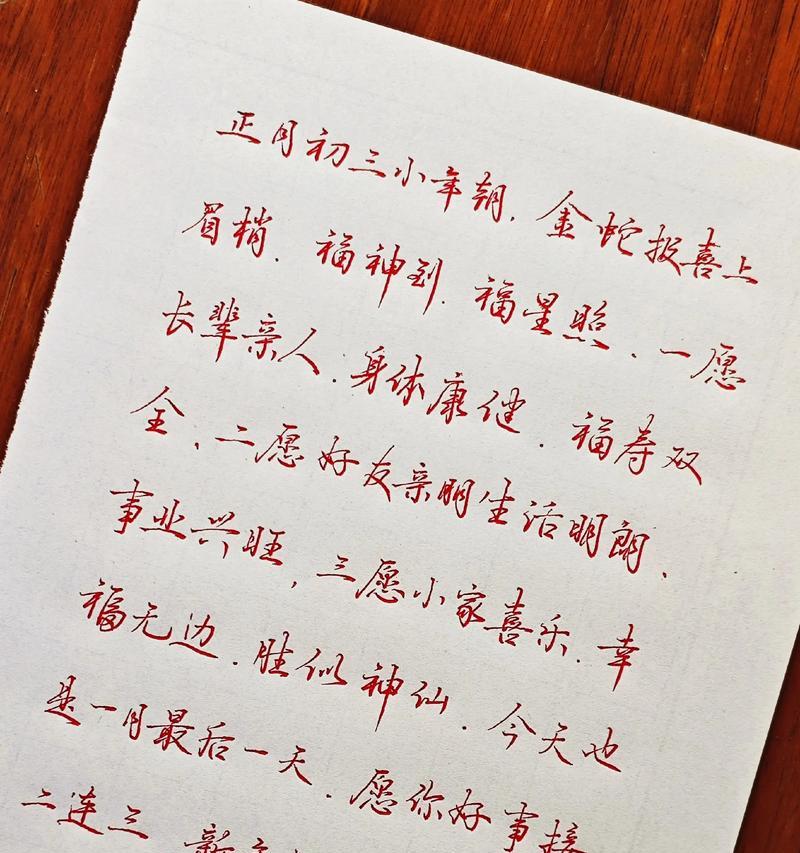 正月初三小年朝，金蛇报喜上
眉梢．福神到．福星照．一愿
长辈亲人．身体康健．福寿双
全、二愿好友亲朋生活明朗、
事业兴旺，三愿小家喜乐．幸
福无边．胜似神仙．今天也
是一月最后一天．愿你好事接
二连三 新